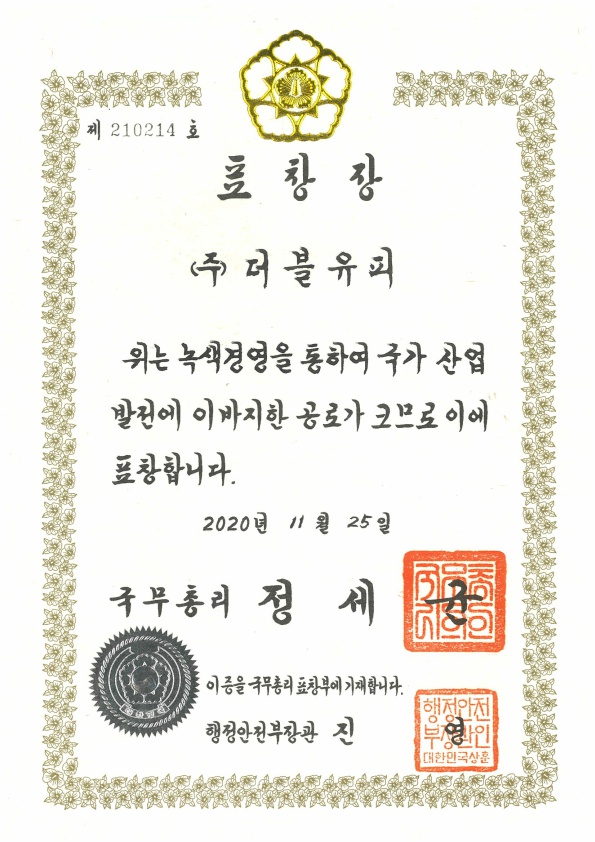 제 210214 호
표창장
(주)더블유피
위는 녹색경영을 통하여 국가 산업
발전에 이바지한 공로가 크므로 이에
표창합니다.
2020년 11월 25일
국무총리 정세균
이 증을 국무총리 표창부에 기재합니다.
행정안전부장관 진영
행정안전
부장관인
대한민국상훈